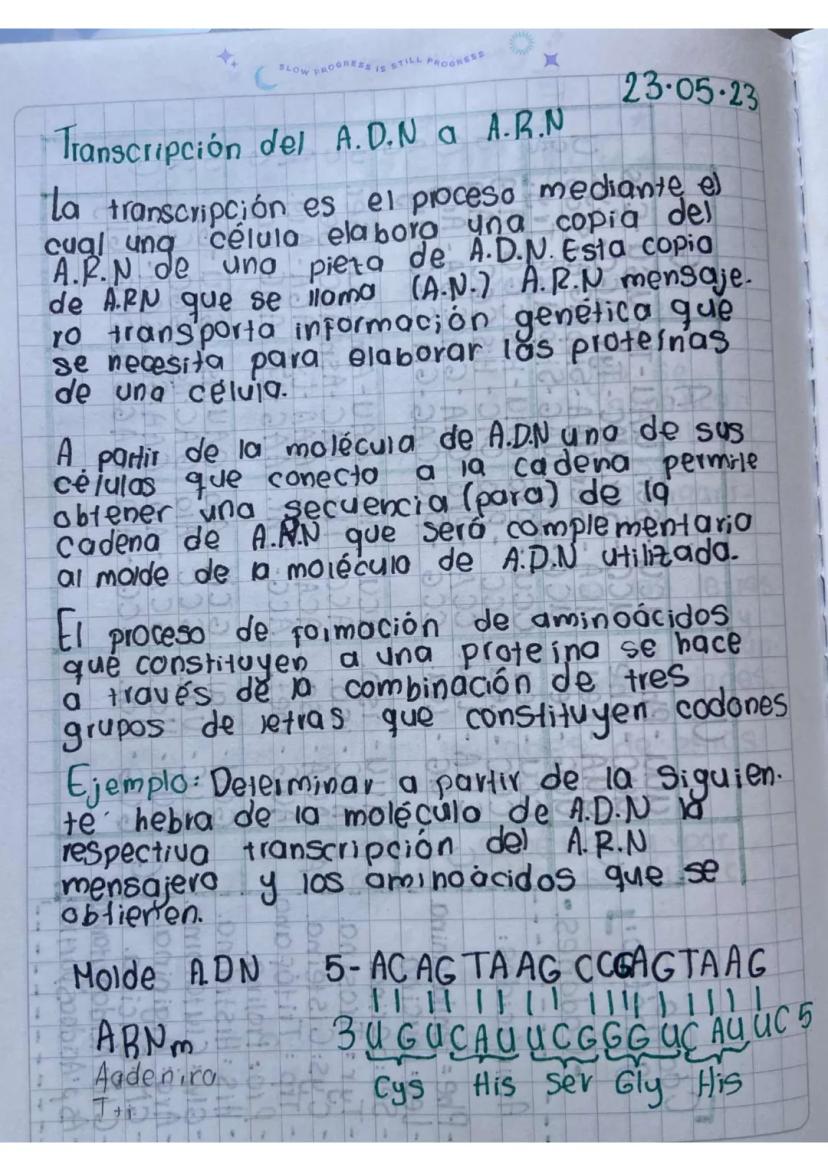 SLOW PROGRESS IS STILL PROGRESS
23·05·23
Transcripción del A.D.N a A.R.N
La transcripción es el proceso mediante el
cual una célula elabora una copia del
A.R.N de una pieza de A.D.N. Esta copia
de A.RN que se llama (A.N.) A.R.N mensaje-
ro transporta información genética que
se necesita para elaborar las proteínas
de una célula.
A partir de la molécula de A.D.N una de sus
células que conecta a la cadena permite
obtener una secuencia (para) de la
cadena de A.R.N que será complementaria
al molde de la molécula de A.D.N utilizada.
El proceso de formación de aminoácidos
que constituyen a una proteína se hace
a través de la combinación de tres
grupos de letras que constituyen codones
Ejemplo: Determinar a partir de la siguien-
te hebra de la molécula de A.D.N la
respectiva transcripción del A.R.N
mensajero y los aminoácidos que se
obtienen.
Molde ADN 5- ACAG TAAG CCGAGTAAG
ARNm 3 UGUCAUUCGGGUCAUUC 5
Cys His Ser Gly His